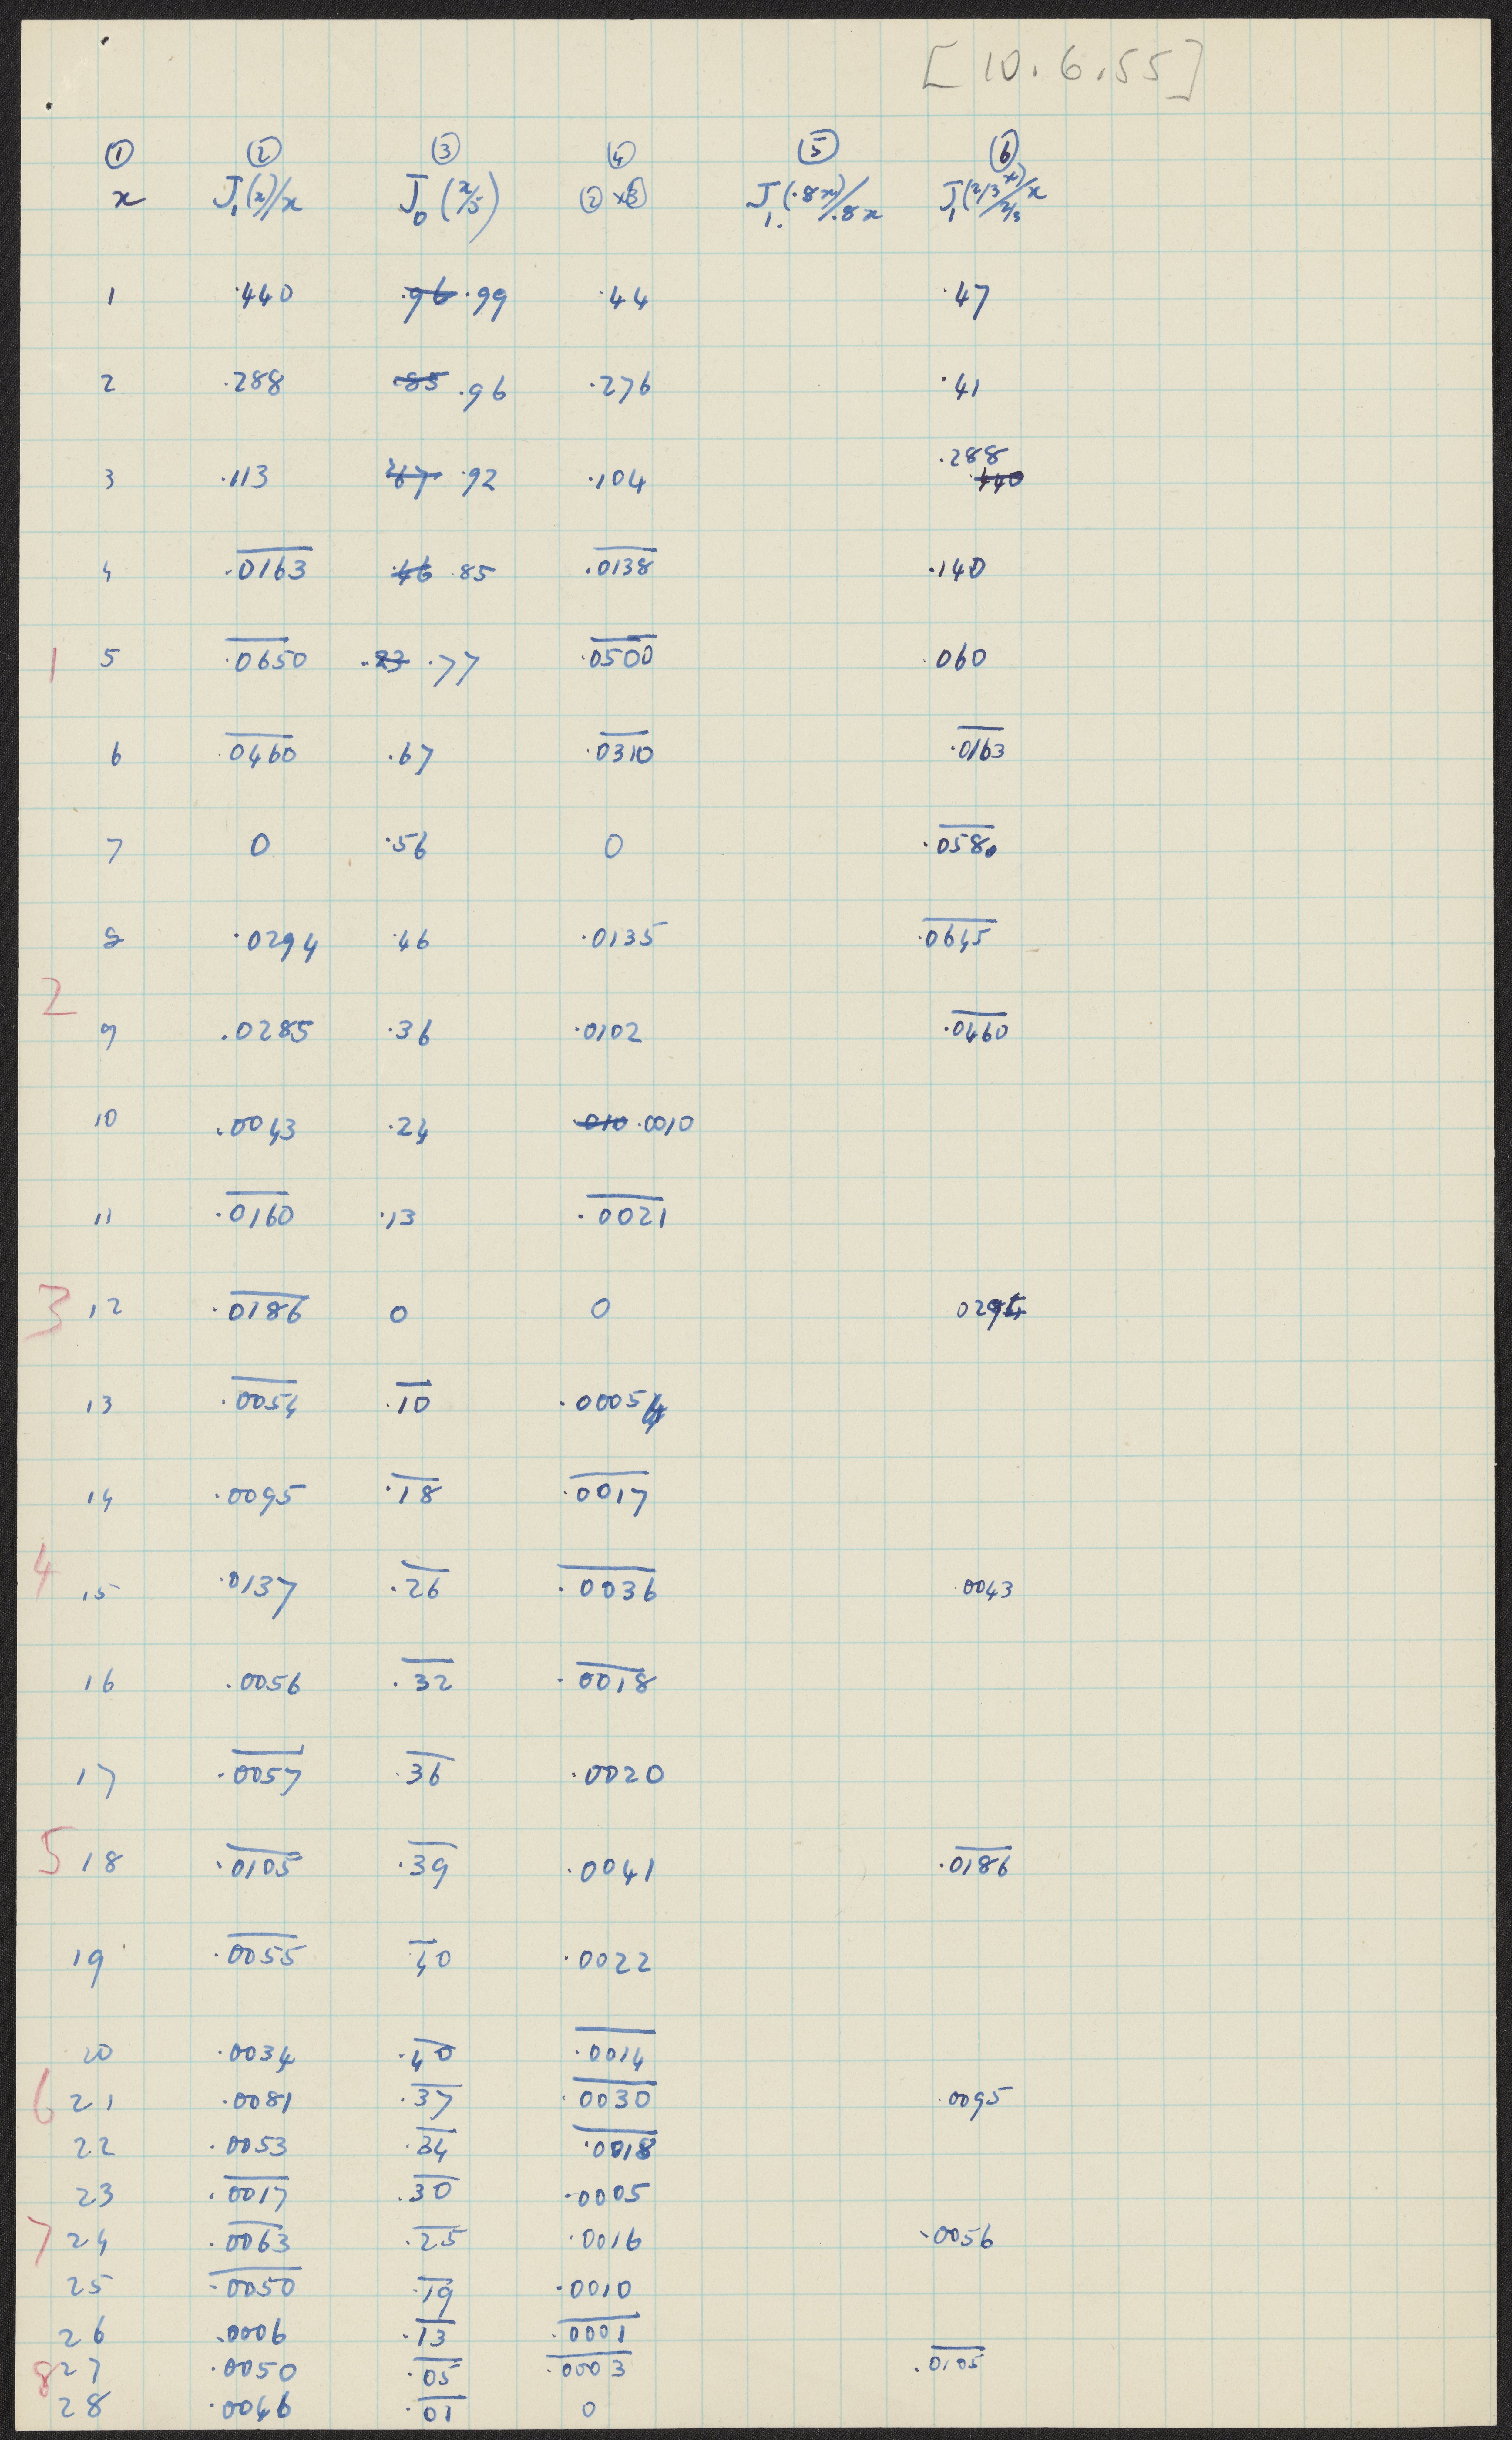 [10.6.55]
① ② ③ ④ ⑤ ⑥
x J₁(x)/x J₀(x/5) ②×③ J₁(.8x)/.8x J₁(2/3 x)/2/3 x
1 .440 .96 .99 .44 .47
2 .288 .85 .96 .276 .41
.288
3 .113 .67 .92 .104 .440
4 .0163 .46 .85 .0138 .140
1 5 .0650 .23 .77 .0500 .060
6 .0460 .67 .0310 .0163
7 0 .56 0 .0580
8 .0294 .46 .0135 .0645
2
9 .0285 .36 .0102 .0460
10 .0043 .24 .010 .0010
11 .0160 .13 .0021
3 12 .0186 0 0 0294
13 .0054 .10 .00054
14 .0095 .18 .0017
4
15 .0137 .26 .0036 .0043
16 .0056 .32 .0018
17 .0057 .36 .0020
5 18 .0105 .39 .0041 .0186
19 .0055 .40 .0022
20 .0034 .40 .0014
6 21 .0081 .37 .0030 .0095
22 .0053 .34 .0018
23 .0017 .30 .0005
7 24 .0063 .25 .0016 .0056
25 .0050 .19 .0010
26 .0006 .13 .0001
8 27 .0050 .05 .0003 .0105
28 .0046 .01 0